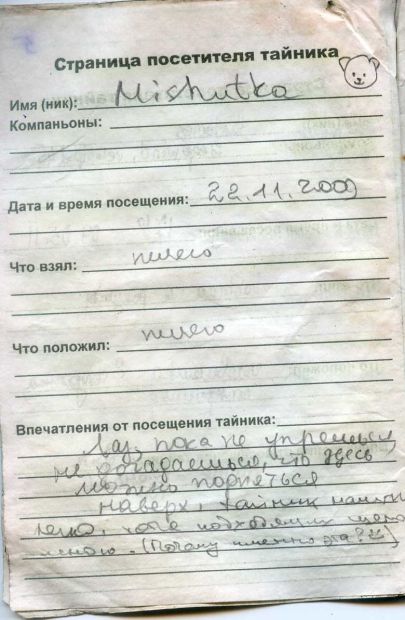 Страница посетителя тайника
Имя (ник): Mishutka
Компаньоны:
Дата и время посещения: 22.11.2009
Что взял: ничего
Что положил: ничего
Впечатления от посещения тайника:
Лаз, пока не упрешься
не догадаешься, что здесь
можно подняться
наверх, тайник нашли
легко, хотя подходили
(Почему именно эта?!